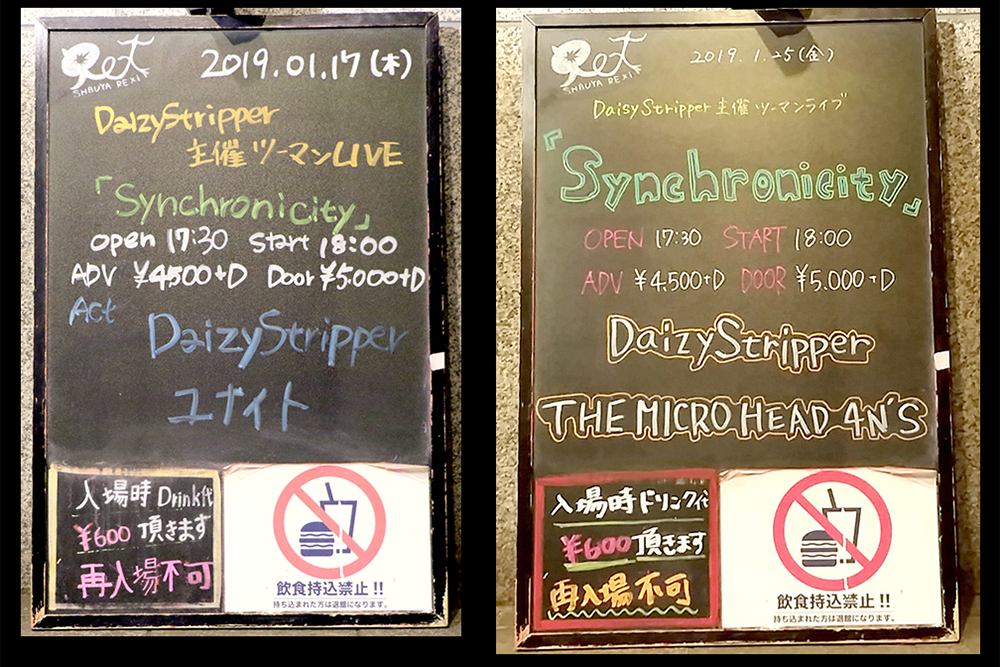 ReX
SHIBUYA REX
2019.01.17(木)
DaizyStripper
主催ツーマンLIVE
「Synchronicity」
open 17:30 start 18:00
ADV ¥4500+D Door ¥5.000+D
Act
DaizyStripper
ユナイト
入場時Drink代
¥600 頂きます
再入場不可
飲食持込禁止!!
持ち込まれた方は退館になります。
ReX
SHIBUYA REX
2019.1.25(金)
DaisyStripper 主催 ツーマンライブ
『Synchronicity』
OPEN 17:30 START 18:00
ADV ¥4.500+D DOOR ¥5.000+D
DaizyStripper
THE MICRO HEAD 4N'S
入場時ドリンク代
¥600 頂きます
再入場不可
飲食持込禁止!!
持ち込まれた方は退館になります。